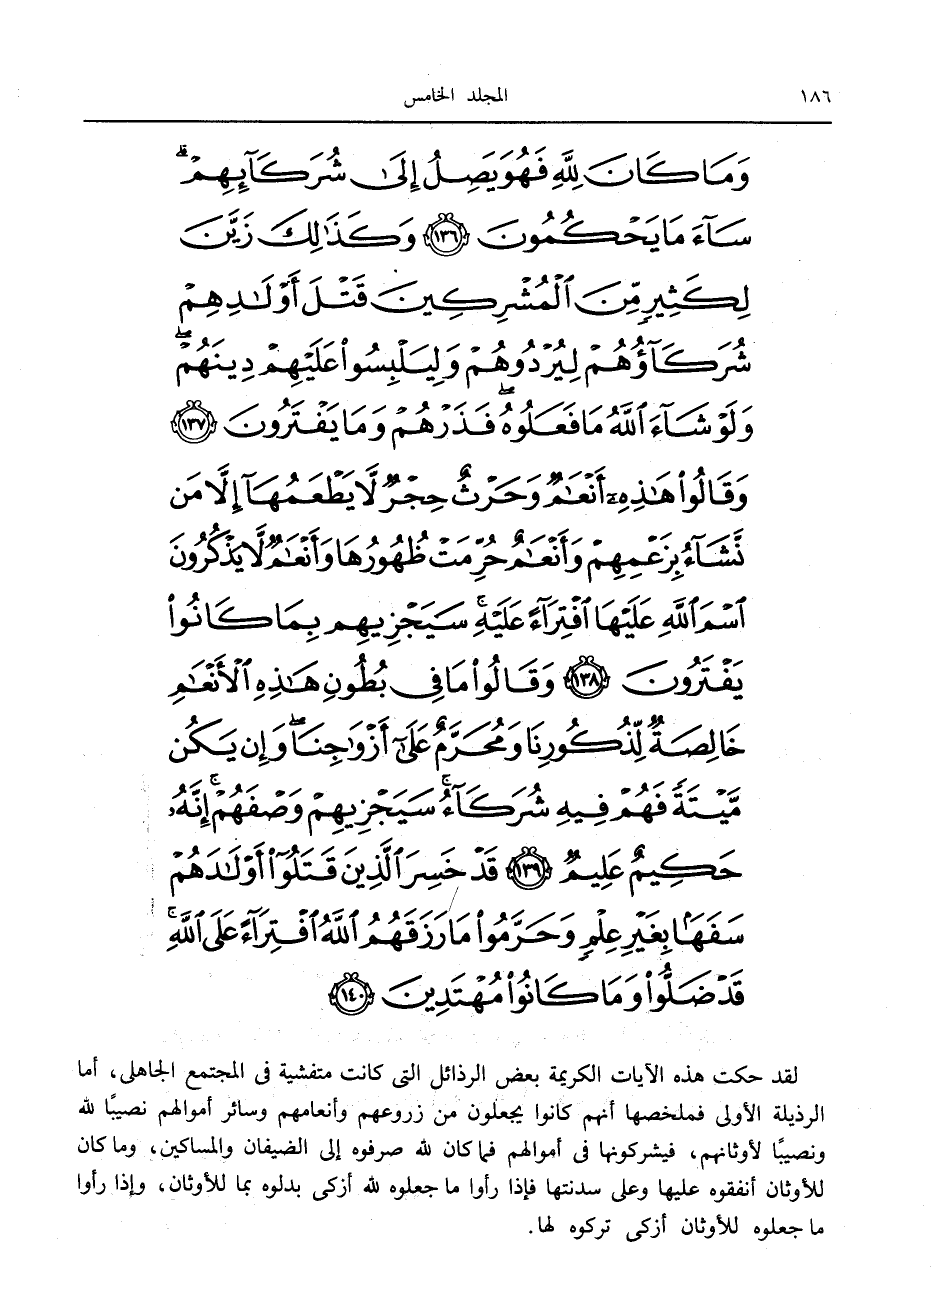 ١٨٦ المجلد الخامس
وَمَا كَانَ لِلَّهِ فَهُوَ يَصِلُ إِلَىٰ شُرَكَآئِهِمْ ۗ
سَآءَ مَا يَحْكُمُونَ ١٣٦ وَكَذَٰلِكَ زَيَّنَ
لِكَثِيرٍ مِّنَ ٱلْمُشْرِكِينَ قَتْلَ أَوْلَٰدِهِمْ
شُرَكَآؤُهُمْ لِيُرْدُوهُمْ وَلِيَلْبِسُوا۟ عَلَيْهِمْ دِينَهُمْ ۖ
وَلَوْ شَآءَ ٱللَّهُ مَا فَعَلُوهُ ۖ فَذَرْهُمْ وَمَا يَفْتَرُونَ ١٣٧
وَقَالُوا۟ هَٰذِهِۦٓ أَنْعَٰمٌ وَحَرْثٌ حِجْرٌ لَّا يَطْعَمُهَآ إِلَّا مَن
نَّشَآءُ بِزَعْمِهِمْ وَأَنْعَٰمٌ حُرِّمَتْ ظُهُورُهَا وَأَنْعَٰمٌ لَّا يَذْكُرُونَ
ٱسْمَ ٱللَّهِ عَلَيْهَا ٱفْتِرَآءً عَلَيْهِ ۚ سَيَجْزِيهِم بِمَا كَانُوا۟
يَفْتَرُونَ ١٣٨ وَقَالُوا۟ مَا فِى بُطُونِ هَٰذِهِ ٱلْأَنْعَٰمِ
خَالِصَةٌ لِّذُكُورِنَا وَمُحَرَّمٌ عَلَىٰٓ أَزْوَٰجِنَا ۖ وَإِن يَكُن
مَّيْتَةً فَهُمْ فِيهِ شُرَكَآءُ ۚ سَيَجْزِيهِمْ وَصْفَهُمْ ۚ إِنَّهُۥ
حَكِيمٌ عَلِيمٌ ١٣٩ قَدْ خَسِرَ ٱلَّذِينَ قَتَلُوٓا۟ أَوْلَٰدَهُمْ
سَفَهًۢا بِغَيْرِ عِلْمٍ وَحَرَّمُوا۟ مَا رَزَقَهُمُ ٱللَّهُ ٱفْتِرَآءً عَلَى ٱللَّهِ ۚ
قَدْ ضَلُّوا۟ وَمَا كَانُوا۟ مُهْتَدِينَ ١٤٠
لقد حكت هذه الآيات الكريمة بعض الرذائل التى كانت متفشية فى المجتمع الجاهلى، أما
الرذيلة الأولى فملخصها أنهم كانوا يجعلون من زروعهم وأنعامهم وسائر أموالهم نصيبًا لله
ونصيبًا لأوثانهم، فيشركونها فى أموالهم فما كان لله صرفوه إلى الضيفان والمساكين، وما كان
للأوثان أنفقوه عليها وعلى سدنتها فإذا رأوا ما جعلوه لله أزكى بدلوه بما للأوثان، وإذا رأوا
ما جعلوه للأوثان أزكى تركوه لها.